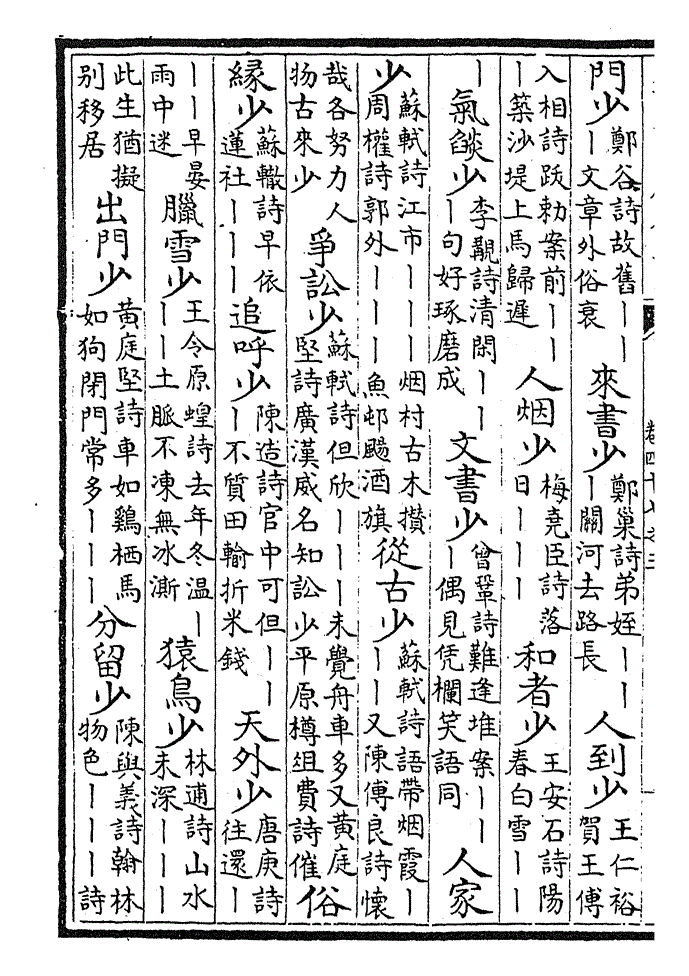 卷四十八之三
門少鄭谷詩故舊｜｜｜文章外俗衰來書少鄭巢詩弟姪｜｜｜關河去路長人到少王仁裕賀王傅
入相詩跋勅案前｜｜｜築沙堤上馬歸遲人烟少梅堯臣詩落日｜｜｜和者少王安石詩陽春白雪｜｜
｜氣燄少李覯詩清閑｜｜｜句好琢磨成文書少曾鞏詩難逢堆案｜｜｜偶見凭欄笑語同人家
少蘇軾詩江市｜｜｜烟村古木攢周權詩郭外｜｜｜魚邨颺酒旗從古少蘇軾詩語帶烟霞｜｜｜又陳傅良詩懷
哉各努力人物古來少爭訟少蘇軾詩但欣｜｜｜未覺舟車多又黃庭堅詩廣漢威名知訟少平原樽俎費詩催俗
緣少蘇轍詩早依蓮社｜｜｜追呼少陳造詩官中可但｜｜｜不質田輸折米錢天外少唐庚詩往還｜
｜｜早晏雨中迷臘雪少王令原蝗詩去年冬温｜｜｜土脈不凍無冰澌猿鳥少林逋詩山水未深｜｜｜
此生猶擬别移居出門少黃庭堅詩車如鷄栖馬如狗閉門常多｜｜｜分留少陳與義詩翰林物色｜｜｜詩